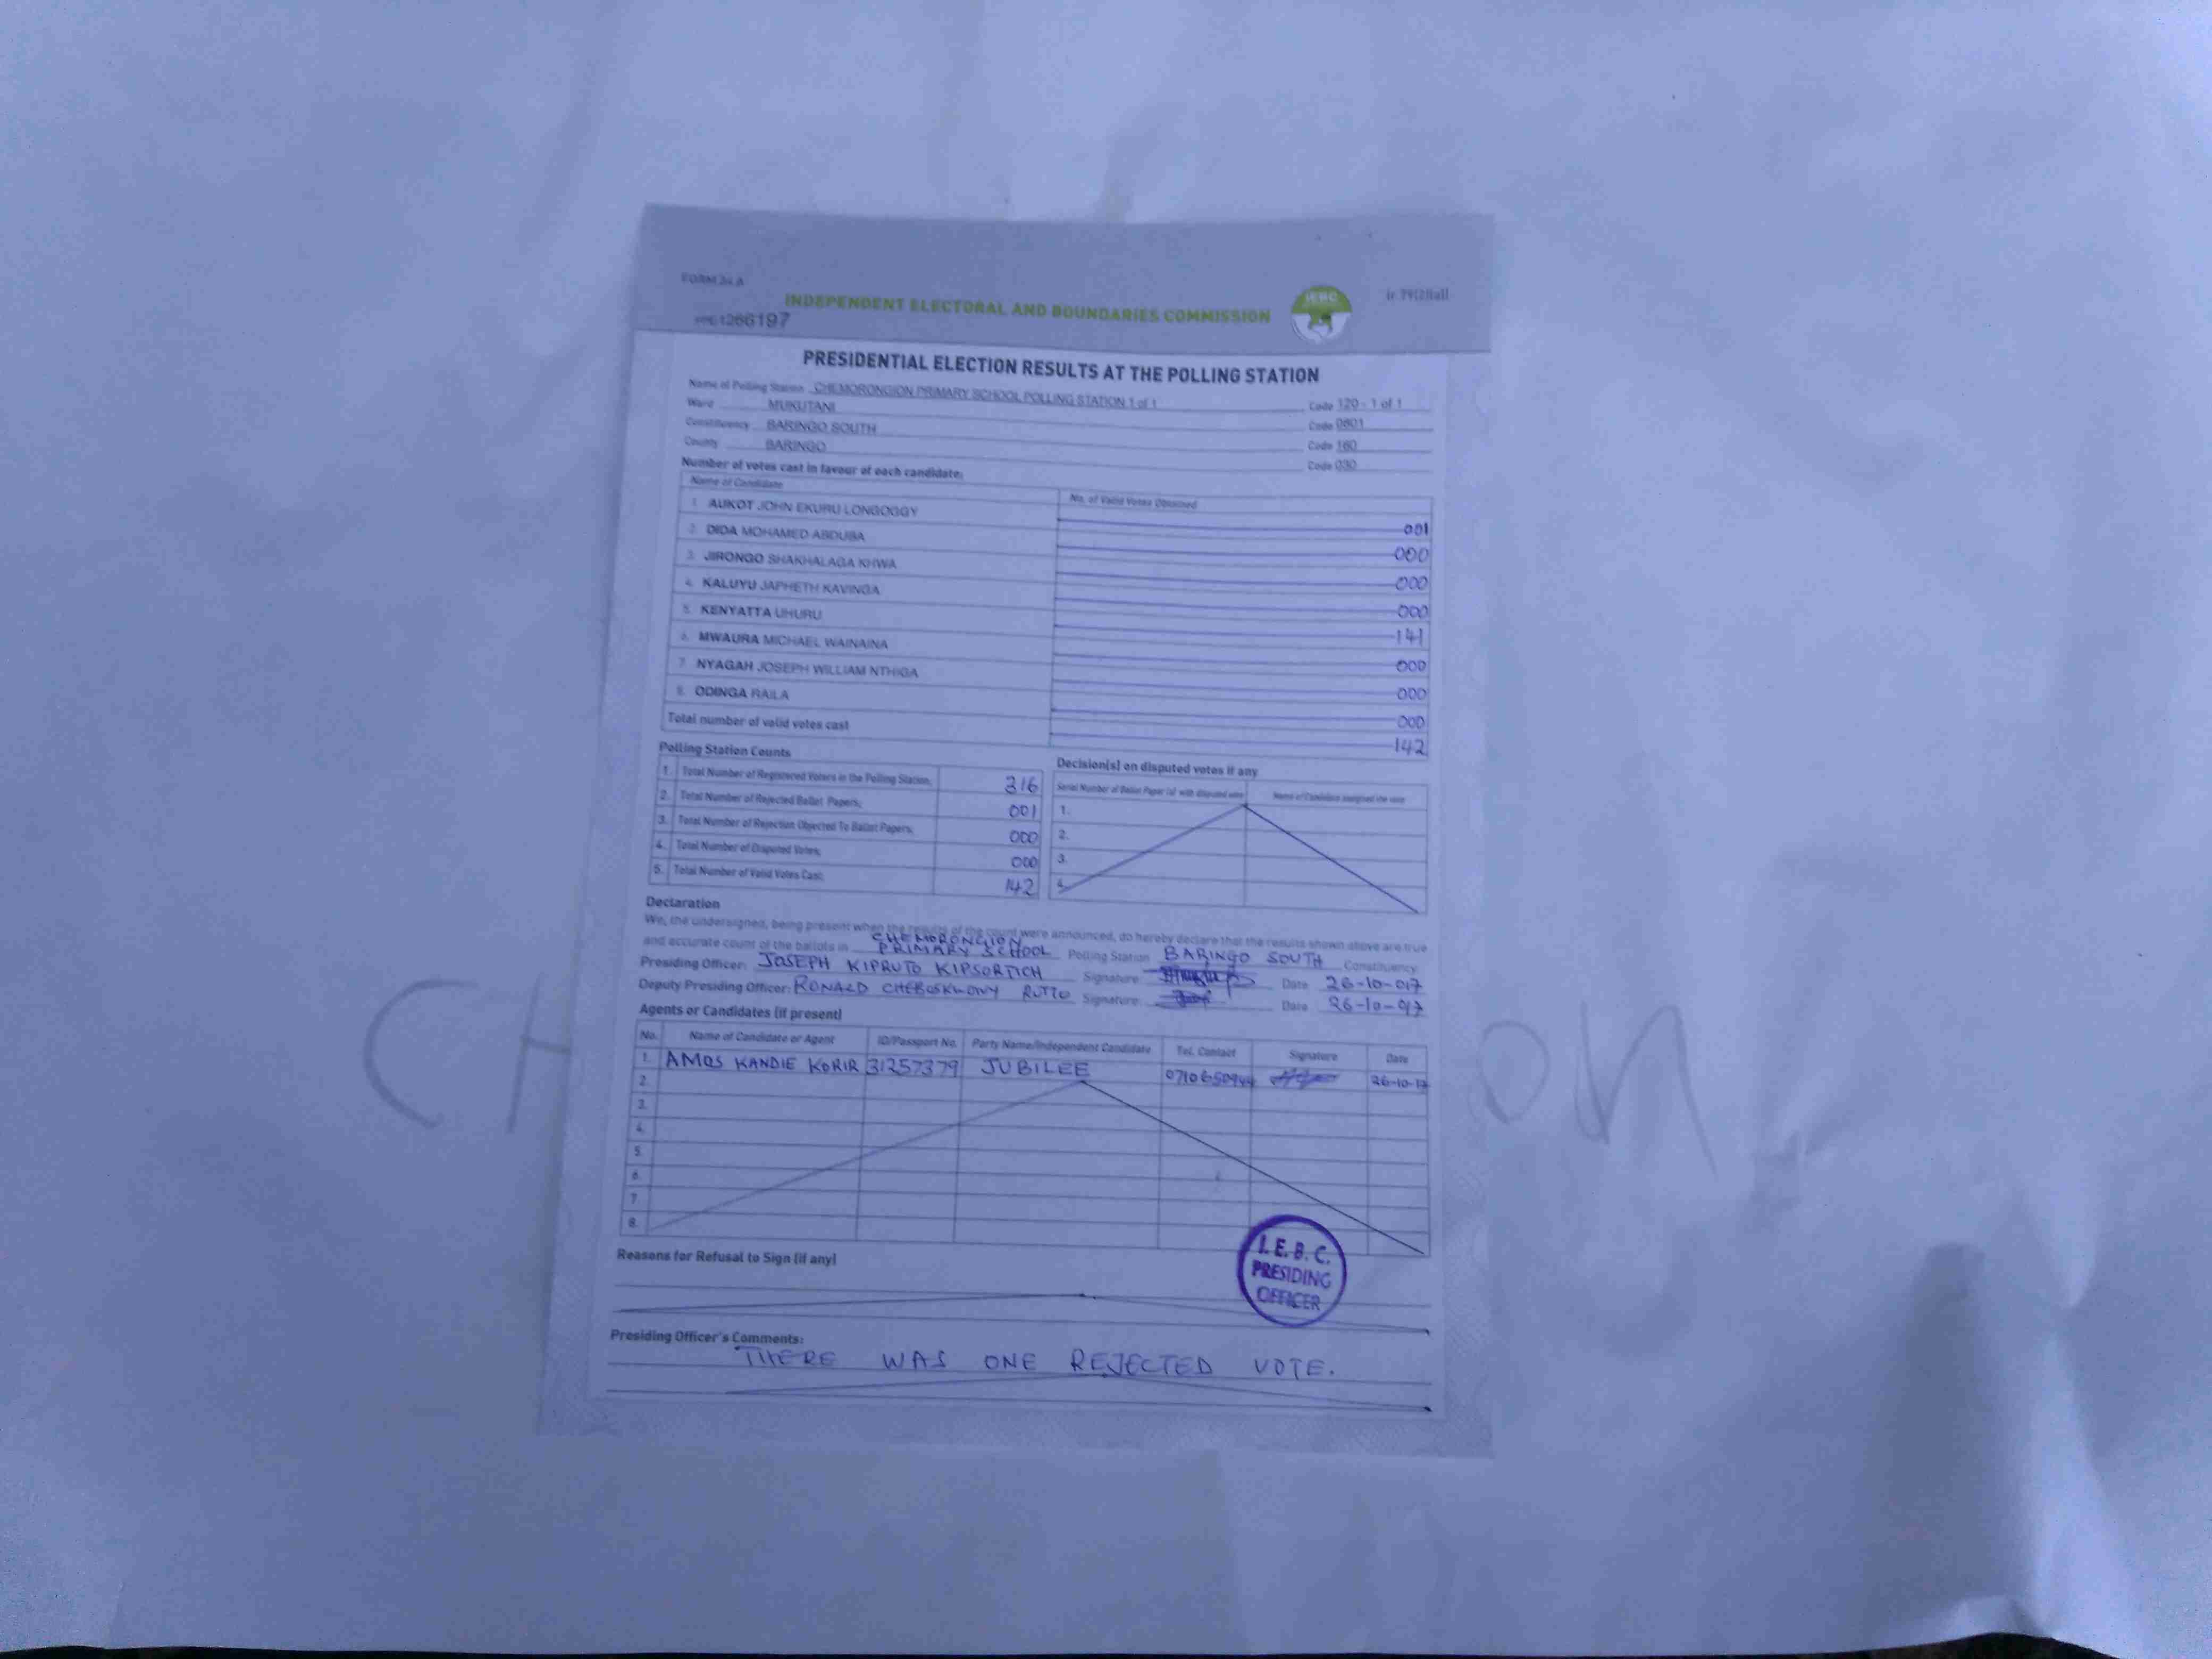 FORM 34 A
INDEPENDENT ELECTORAL AND BOUNDARIES COMMISSION
IEBC
PRESIDENTIAL ELECTION RESULTS AT THE POLLING STATION
Name of Polling Station CHEMORONGION PRIMARY SCHOOL POLLING STATION 1 of 1 Code 120 - 1 of 1
Ward MUKUTANI Code 0801
Constituency BARINGO SOUTH Code 160
County BARINGO Code 030
Number of votes cast in favour of each candidate:
Name of Candidate No. of Valid Votes Obtained
1. AUKOT JOHN EKURU LONGOGGY 001
2. DIDA MOHAMED ABDUBA 000
3. JIRONGO SHAKHALAGA KHWA 000
4. KALUYU JAPHETH KAVINGA 000
5. KENYATTA UHURU 141
6. MWAURA MICHAEL WAINAINA 000
7. NYAGAH JOSEPH WILLIAM NTHIGA 000
8. ODINGA RAILA 000
Total number of valid votes cast 142
Polling Station Counts
1. Total Number of Registered Voters in the Polling Station; 316
2. Total Number of Rejected Ballot Papers; 001
3. Total Number of Rejection Objected To Ballot Papers; 000
4. Total Number of Disputed Votes; 000
5. Total Number of Valid Votes Cast; 142
Decision(s) on disputed votes if any
Serial Number of Ballot Paper (s) with disputed vote Name of Candidate assigned the vote
1.
2.
3.
4.
Declaration
We, the undersigned, being present when the results of the count were announced, do hereby declare that the results shown above are true
and accurate count of the ballots in CHEMORONGION PRIMARY SCHOOL Polling Station BARINGO SOUTH Constituency
Presiding Officer: JOSEPH KIPRUTO KIPSORTICH Signature Date 26-10-017
Deputy Presiding Officer: RONALD RUTTO Signature: Date 26-10-017
Agents or Candidates (if present)
No. Name of Candidate or Agent ID/Passport No. Party Name/Independent Candidate Tel. Contact Signature Date
1. AMOS KANDIE KORIR 31257379 JUBILEE 26-10-17
2.
3.
4.
5.
6.
7.
8.
I.E.B.C.
PRESIDING
OFFICER
Reasons for Refusal to Sign (if any)
Presiding Officer's Comments:
THERE WAS ONE REJECTED VOTE.
CH
ON